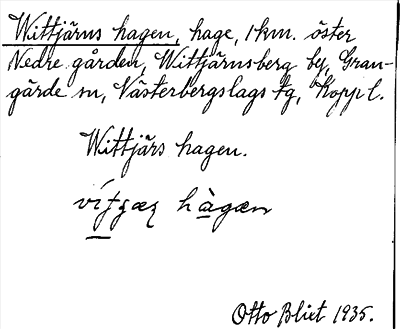 Wittjärns hagen, hage, 1 km. öster
Nedre gården, Wittjärnsberg by, Gran-
gärde sn, Västerbergslags tg, Kopp l.
Wittjärs hagen.
hàgæn
Otto Blixt 1935.